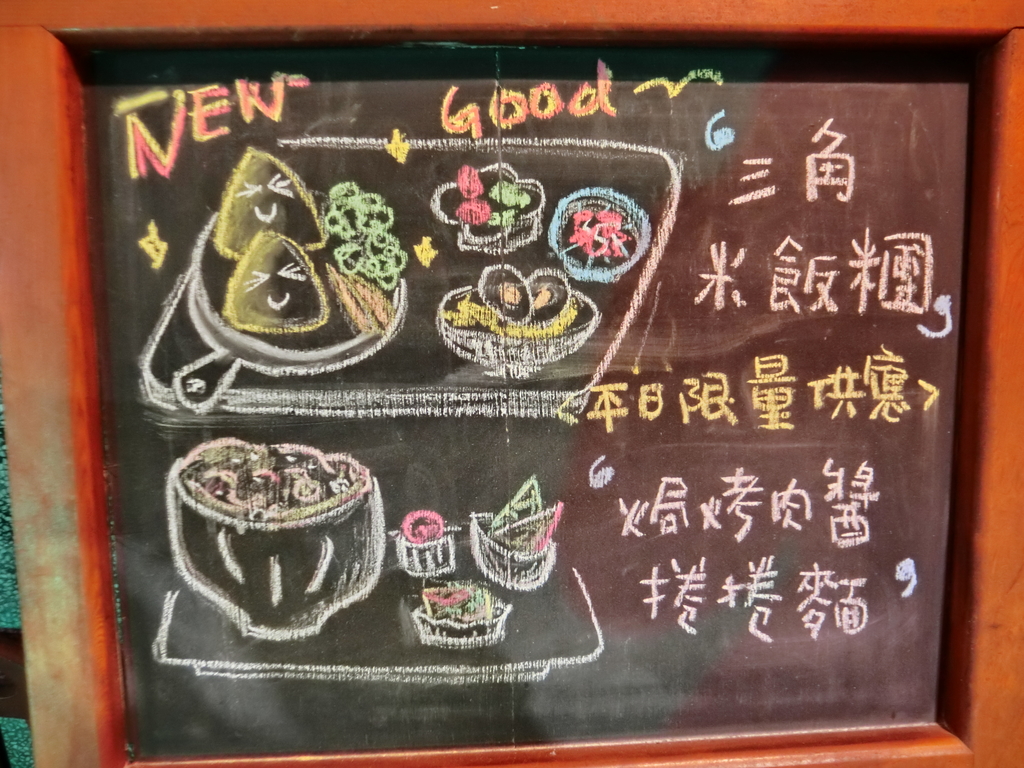 NEW Good~
“三角
米飯糰”
<本日限量供應>
“焗烤肉醬
捲捲麵”